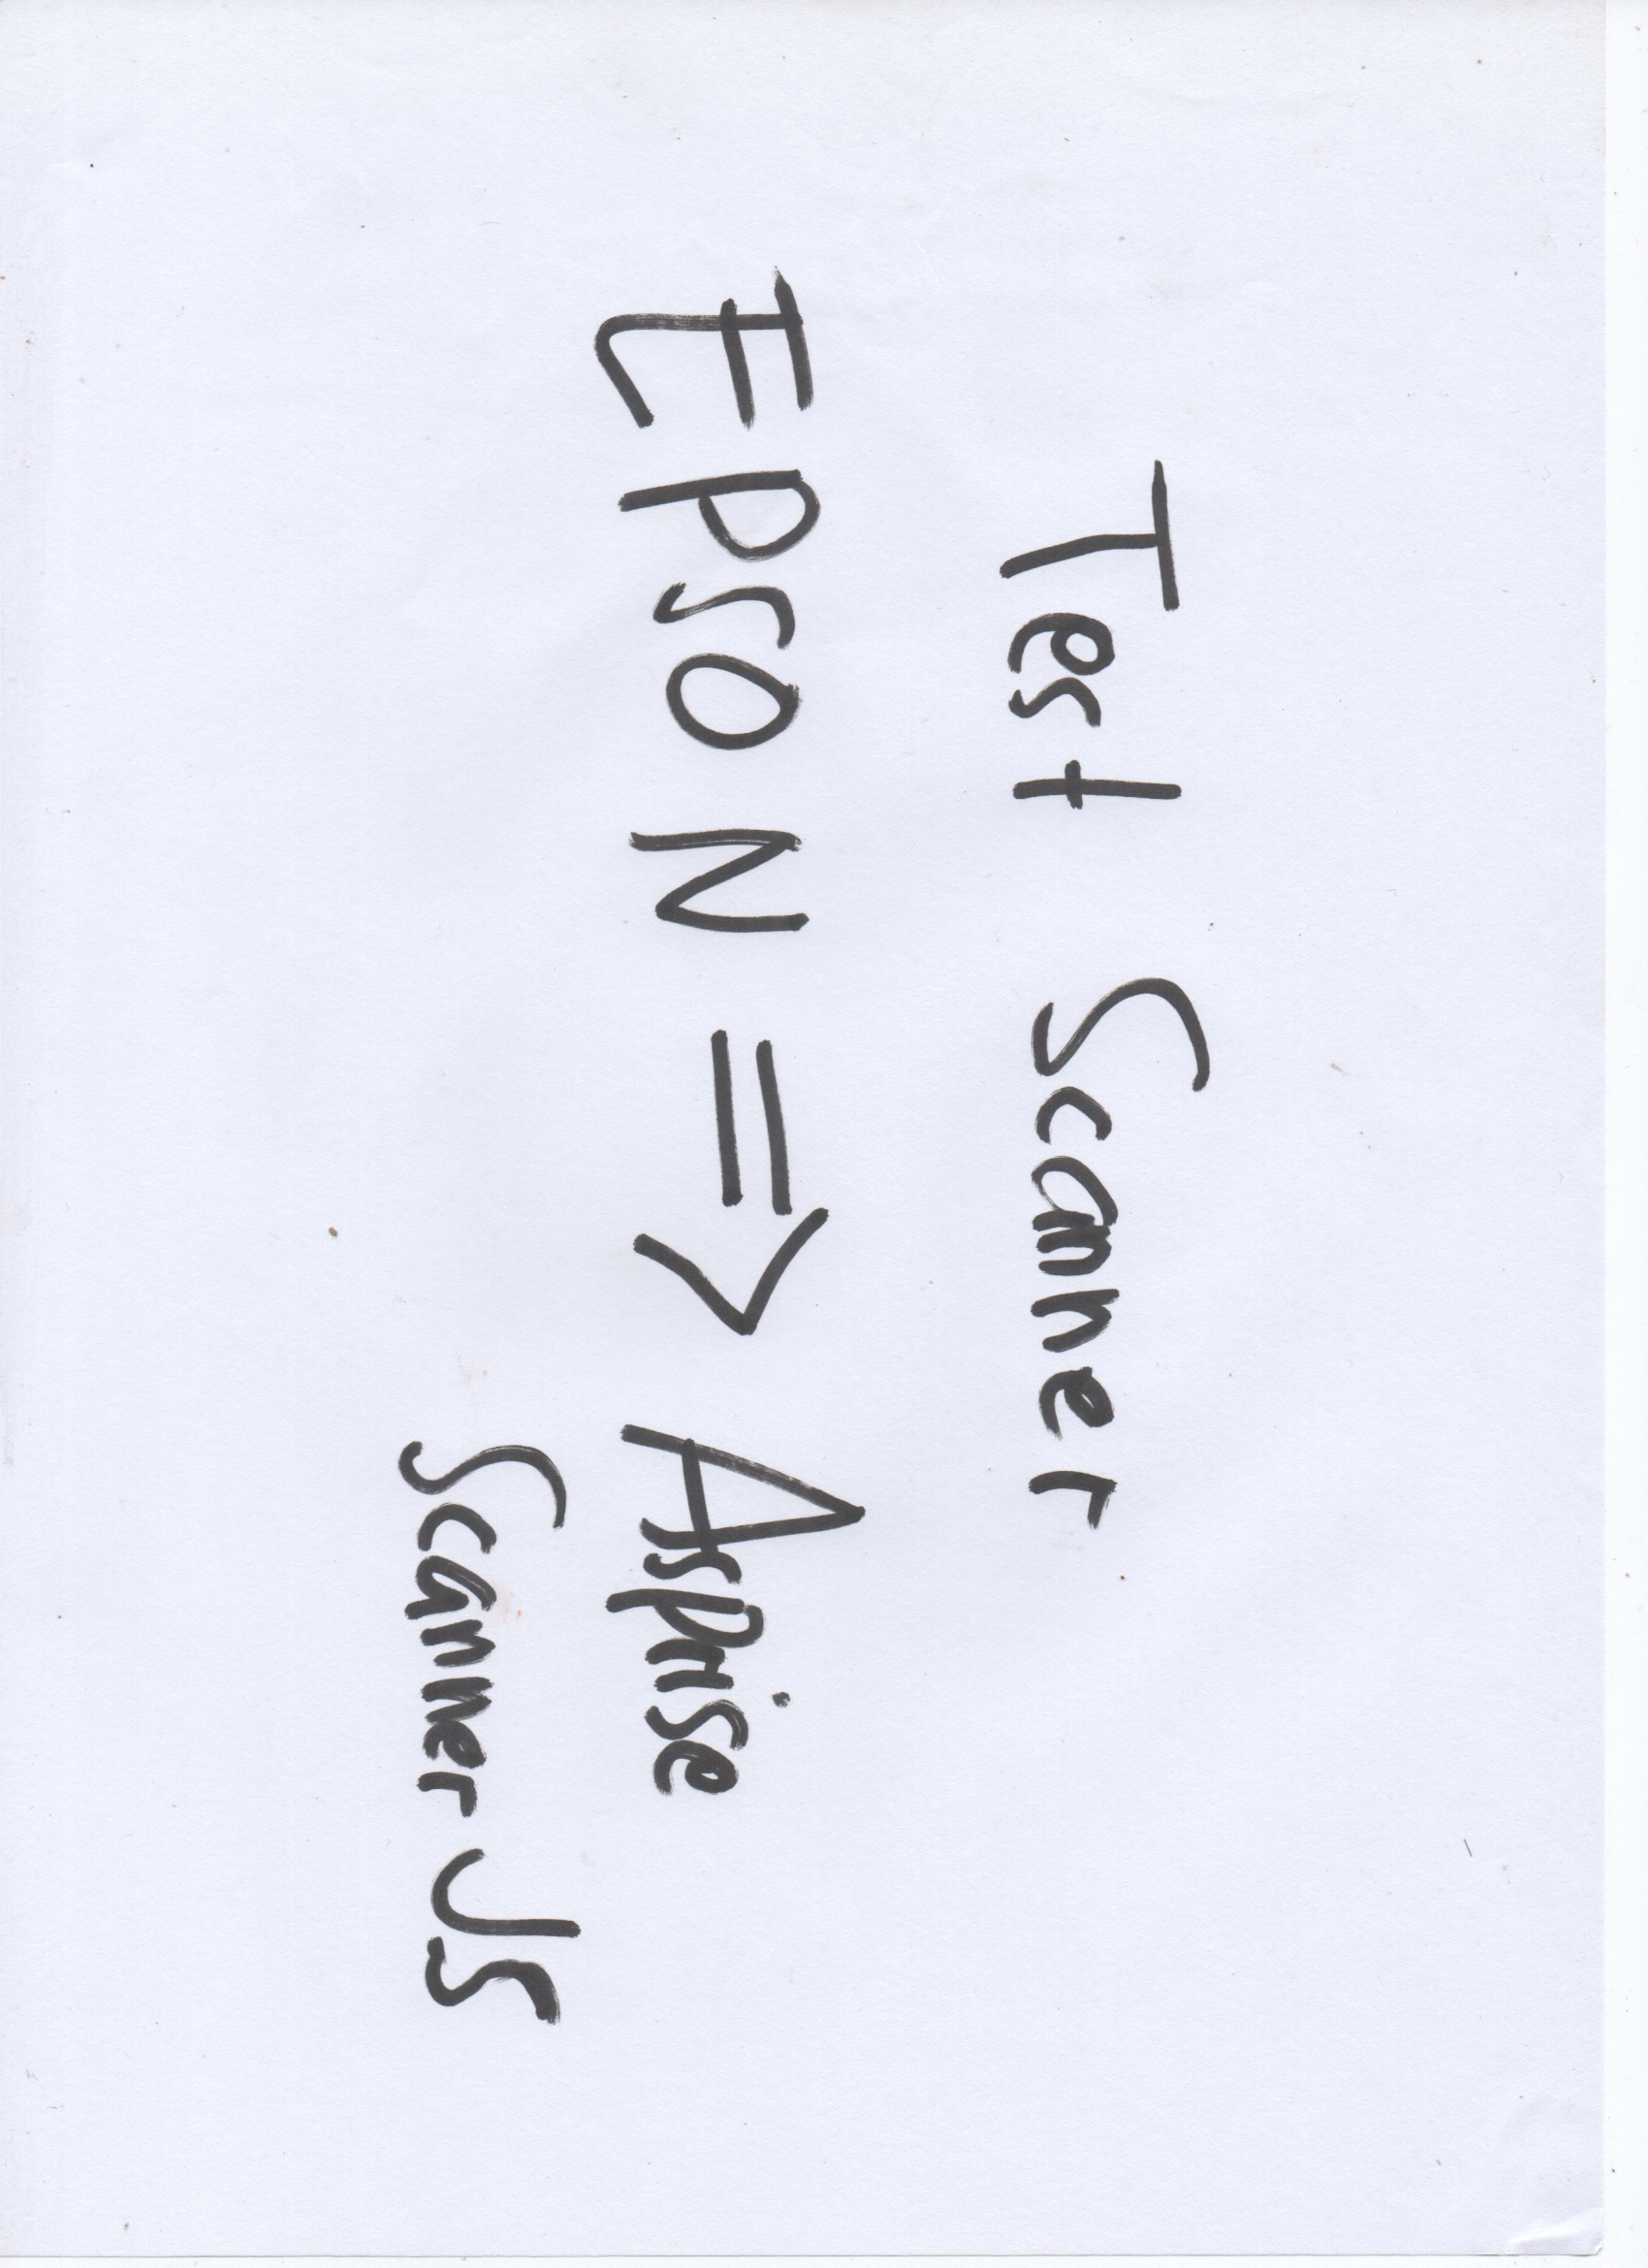 Test Scanner
EPSON => Asprise
Scanner JS